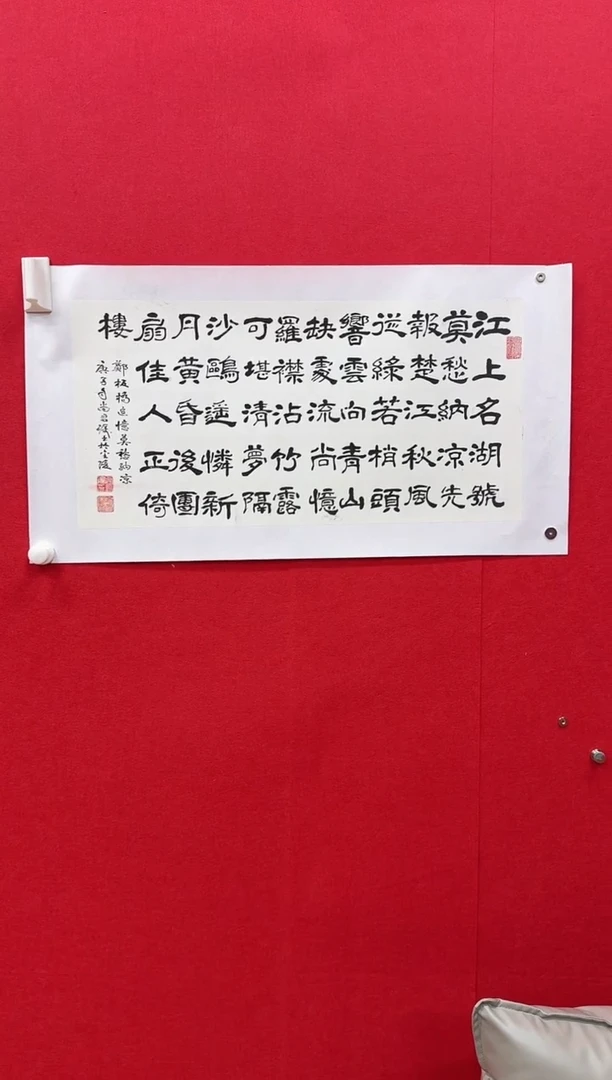 江上名湖號
莫愁納凉先
報楚江秋風
從綠若梢頭
響雲向青山
缺處流尚憶
羅襟沾竹露
可堪清夢隔
沙鷗遥憐新
月黃昏後團
扇佳人正倚
樓
鄭板橋追憶莫愁納凉
庚子書於金陵